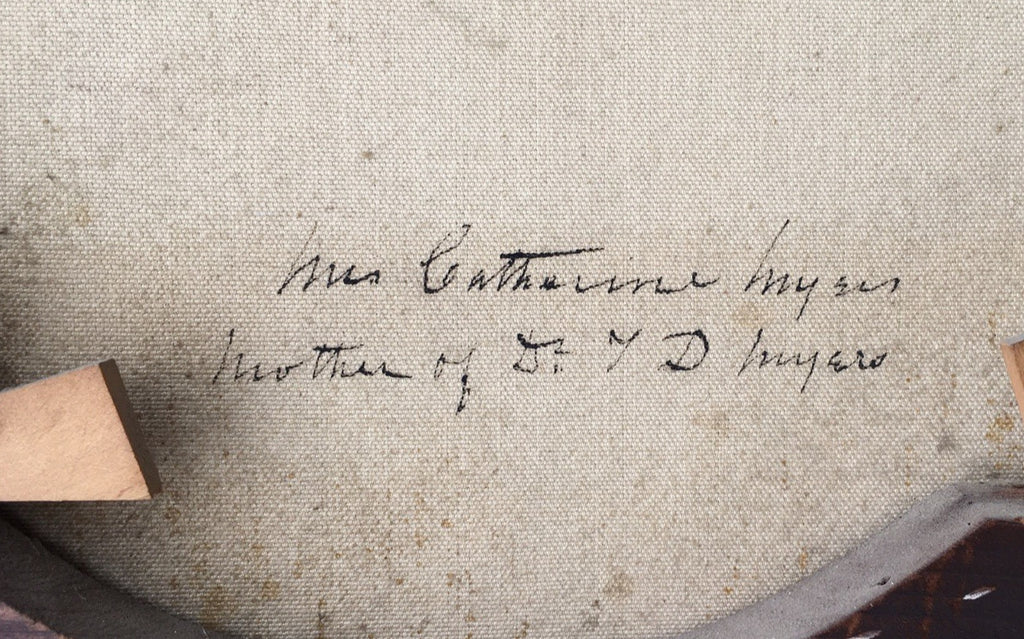 Mrs Catherine Myers
Mother of Dr T D Myers